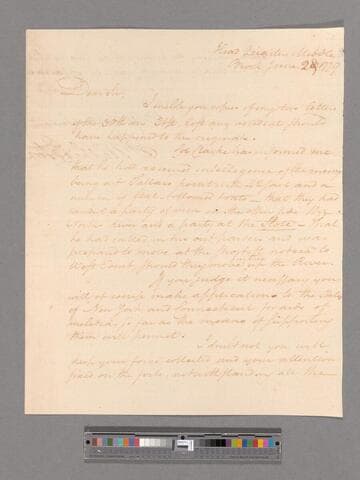 Head Quarters Middle
Brook June 2d 1779
Dear Sir,
I inclose you copies of my two letters
of the 30th and 31st lest any accident should
have happened to the originals.
Col Clarke has informed me
that he had received intelligence of the enemy
being at Tallars point with 26 sail and a
number of flat-bottomed boats – that they had
landed a party of men on the
York river and a party at the – that
he had called in his out parties and was
prepared to move at the shortest notice to
West Point should they proceed up the River.
If you judge it necessary you
will of course make application to the State
of New York and Connecticut for aids of
militia, so far as the means of supporting
them will permit.
I doubt not you will
keep your force collected and your attention
fixed on the forts, notwithstanding all the